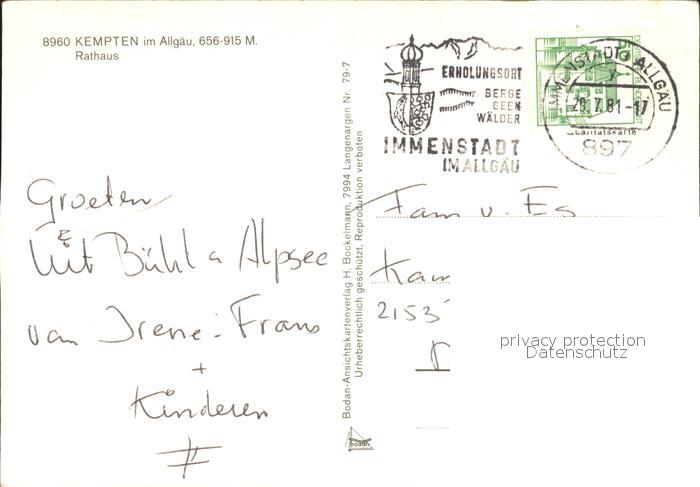 8960 KEMPTEN im Allgäu, 656-915 M.
Rathaus
ERHOLUNGSORT
BERGE
SEEN
WÄLDER
IMMENSTADT
IM ALLGÄU
IMMENSTADT ALLGÄU
y
20.7.81-17
897
Groeten
uit Bühl a Alpsee
van Irene - Frans
+
Kinderen
Bodan-Ansichtskartenverlag H. Bockelmann, 7994 Langenargen Nr. 79-7
Urheberrechtlich geschützt, Reproduktion verboten
bodan
Fam v. Es
Kam
2153
privacy protection
Datenschutz